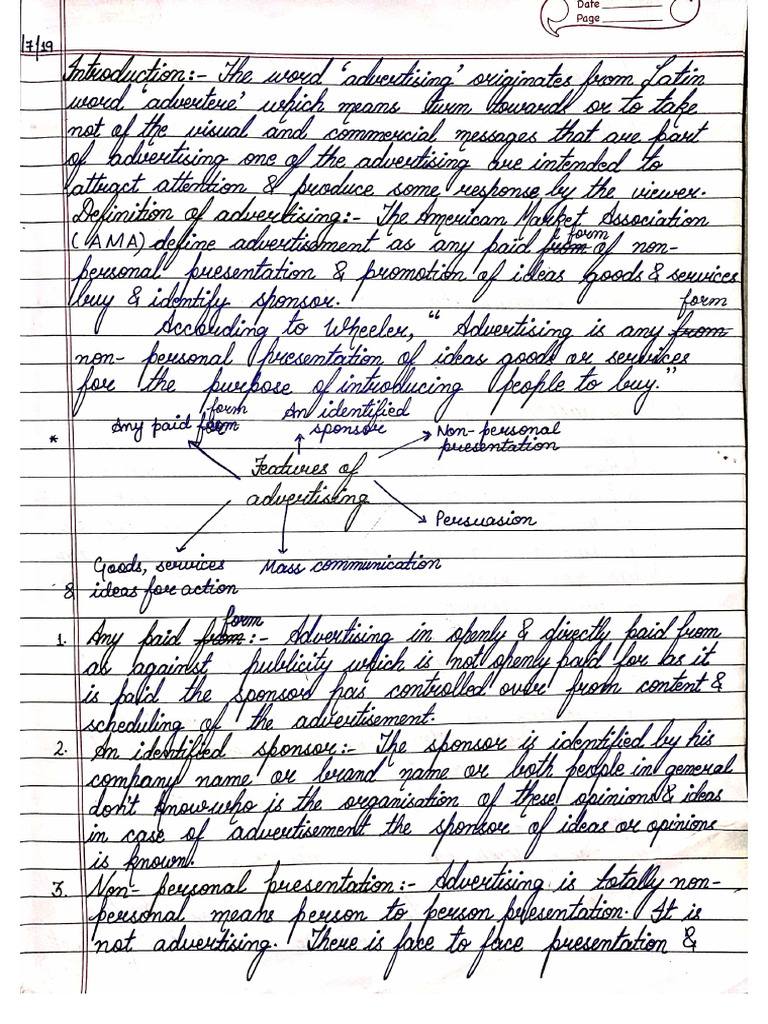 Date
Page
/7/19
Introduction:- The word 'advertising' originates from Latin
word 'advertere' which means turn towards or to take
not of the visual and commercial messages that are part
of advertising one of the advertising are intended to
attract attention & produce some response by the viewer.
Definition of advertising:- The American Market Association
form
(AMA) define advertisment as any paid from of non-
personal presentation & promotion of ideas goods & services
buy & identify sponsor.
form
According to Wheeler, " Advertising is any from
non- personal presentation of ideas goods or services
for the purpose of introducing people to buy."
form An identified
* Any paid sponsor Non-personal
presentation
Features of
advertising
Persuasion
Goods, services Mass communication
& ideas for action
form
1. Any paid from:- Advertising in openly & directly paid from
as against publicity which is not openly paid for as it
is paid the sponsors has controlled over from content &
scheduling of the advertisement.
2. An identified sponsor:- The sponsor is identified by his
company name or brand name or both people in general
don't know who is the organisation of these opinions & ideas
in case of advertisement the sponsor of ideas or opinions
is known.
3. Non- personal presentation:- Advertising is totally non-
personal means person to person presentation. It is
not advertising. There is face to face presentation &